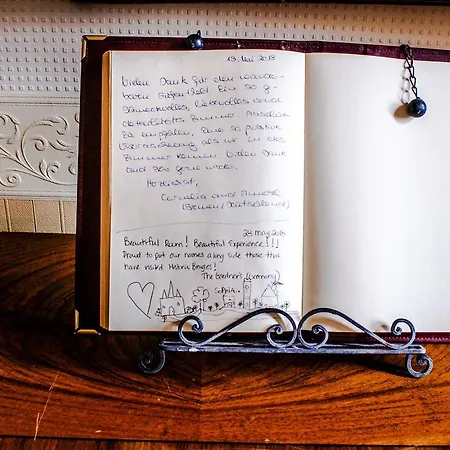 13. Mai 2018
Vielen Dank für den wunder-
baren Aufenthalt! Ein so g
schmackvolles, liebevolles und
detailliertes Zimmer.
Zu empfehlen, eine so positive
Überraschung als wir in das
Zimmer kamen. Vielen Dank
und sehr gerne wieder.
Herzlichst,
Cornelia und
(Bremen/Deutschland)
28 may 2018
Beautiful Room! Beautiful Experience!!!
Proud to put our names along side those that
have visited Historic Bruges!
The Gardner's (Germany)
SOPHIA..